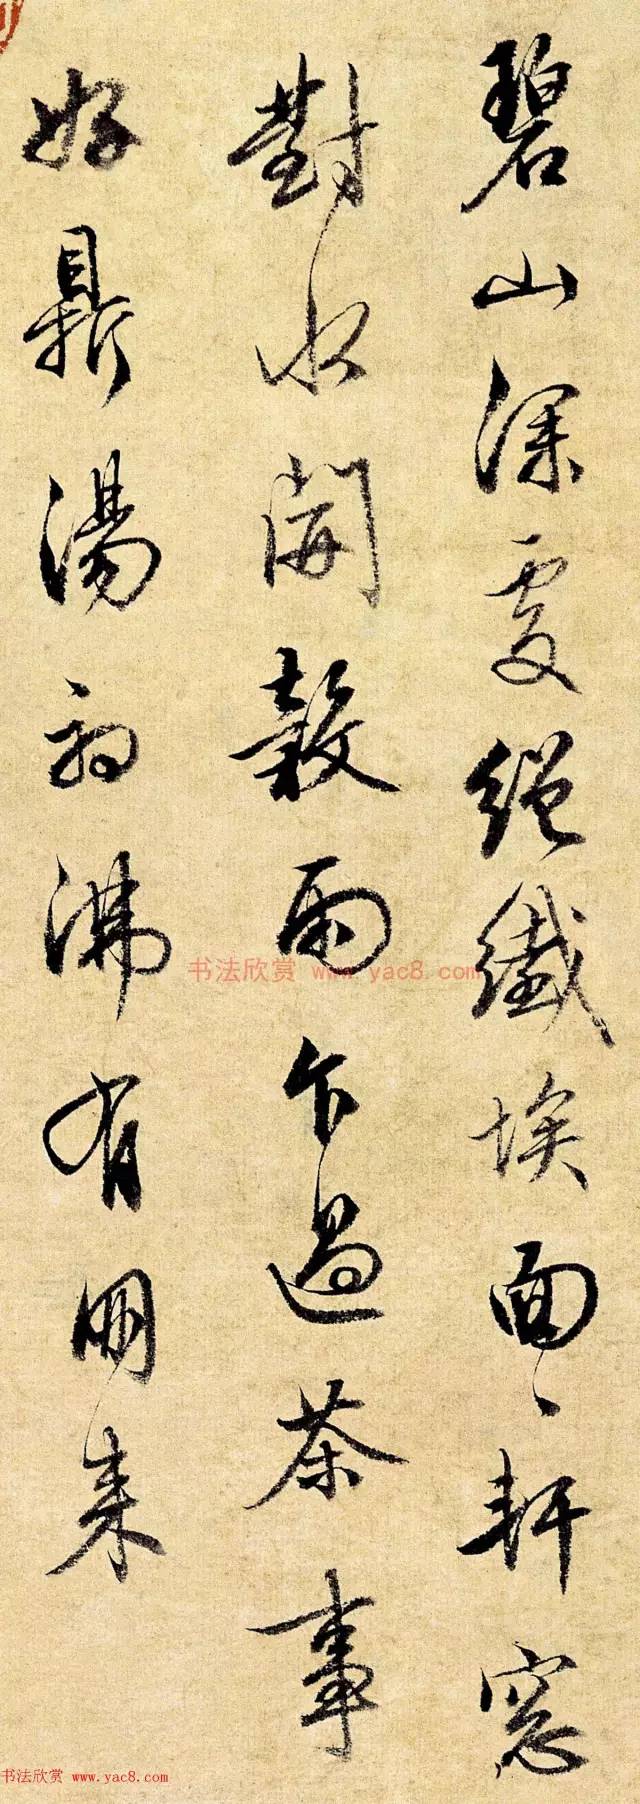 碧山深處絕纖埃面〻軒窓
對水開穀雨乍過茶事
好鼎湯初沸有朋来
书法欣赏 www.yac8.com
书法欣赏 www.yac8.com